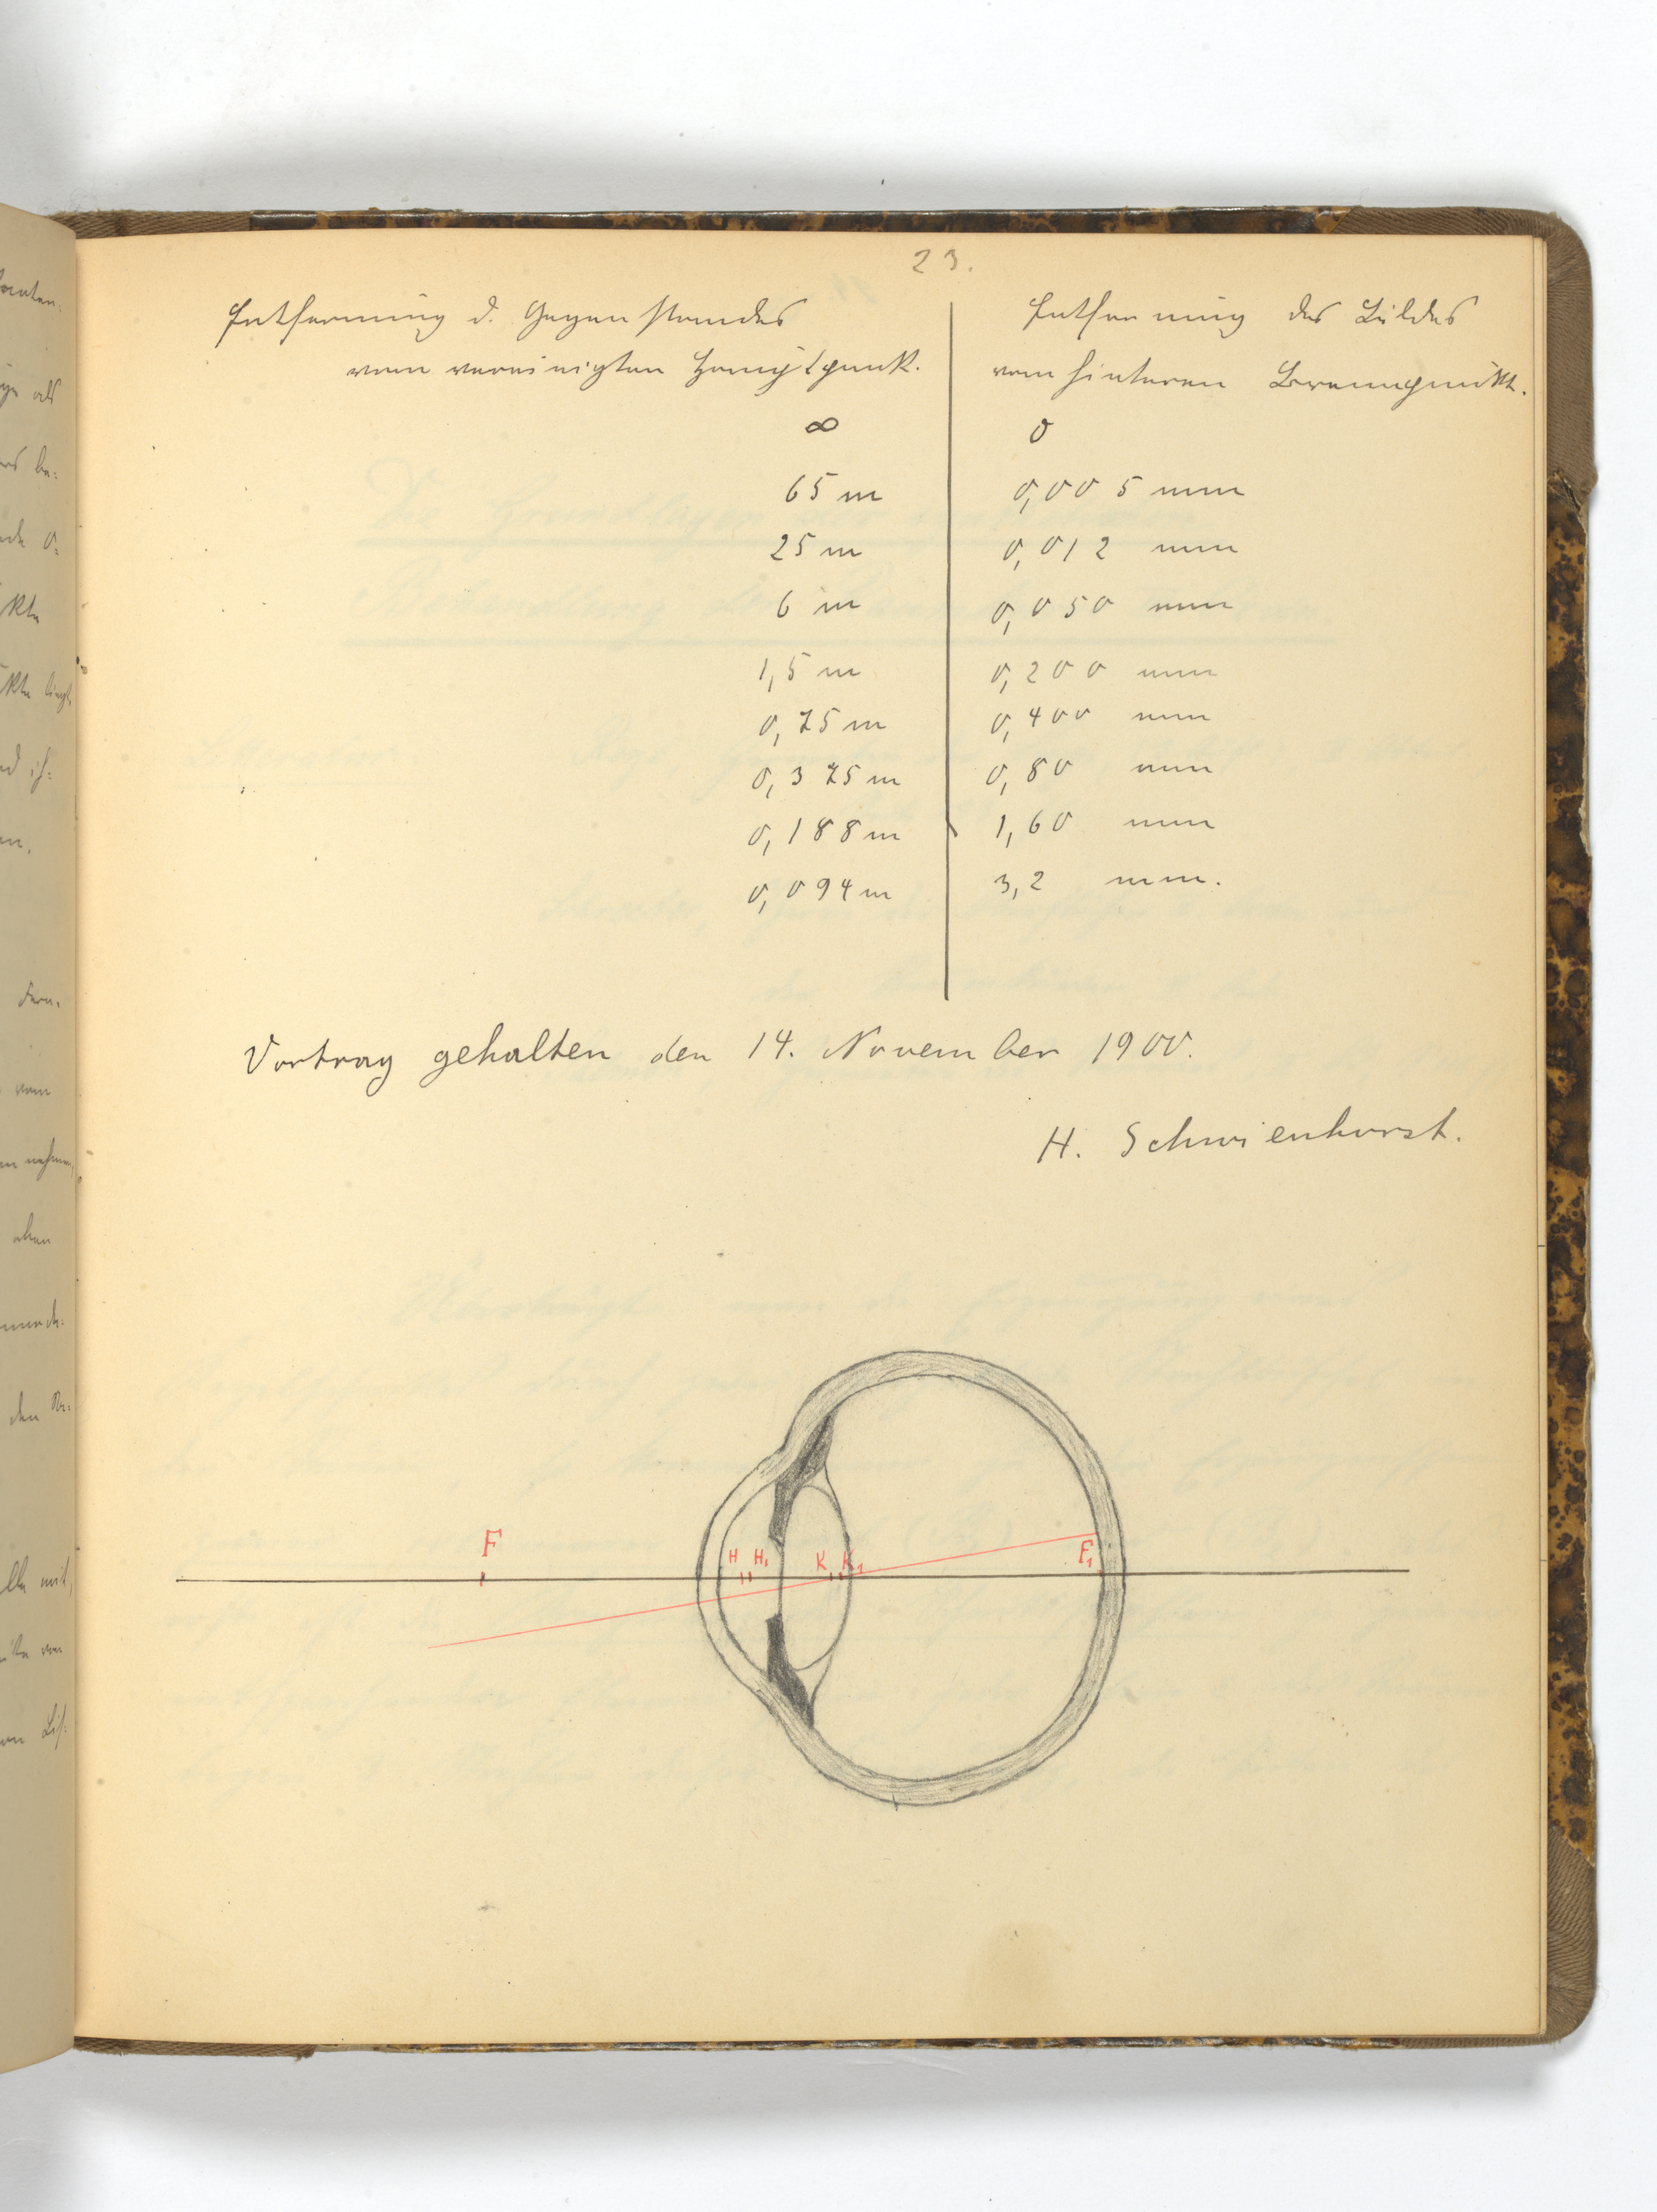 23.
Entfernung d. Gegenstandes
vom vereinigten Hauptpunk.
∞
65 m
25 m
6 m
1,5 m
0,75 m
0,375 m
0,188 m
0,094 m
Entfernung des Bildes
vom hinteren Brennpunkt.
0
0,005 mm
0,012 mm
0,050 mm
0,200 mm
0,400 mm
0,80 mm
1,60 mm
3,2 mm.
Vortrag gehalten den 14. November 1900.
H. Schwienhorst.
F
H H₁ K K₁
F₁